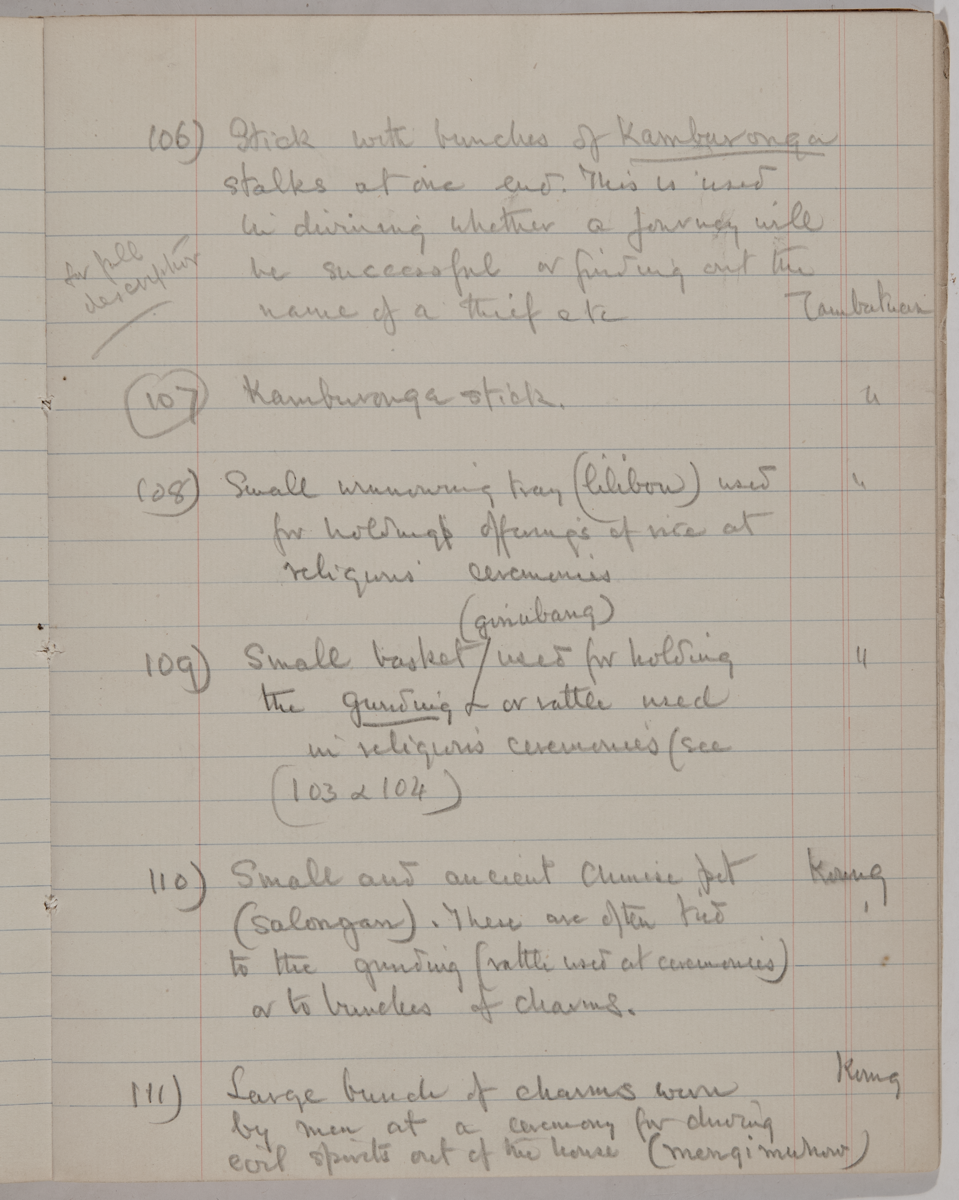 106) Stick with bunches of Kamburonga
stalks at one end. This is used
in divining whether a journey will
be successful or finding out the
name of a thief etc Tambatuan
for full
description
107) Kamburonga stick. "
108) Small winnowing tray (lilibou) used "
for holding offerings of rice at
religious ceremonies
(ginubang)
109) Small basket / used for holding "
the gunding & or rattle used
in religious ceremonies (see
(103 & 104)
110) Small and ancient Chinese pot
(salongan). These are often tied
to the gunding (rattle used at ceremonies)
or to bunches of charms.
111) Large bunch of charms worn
by men at a ceremony for driving
evil spirits out of the house (mengimuhou)